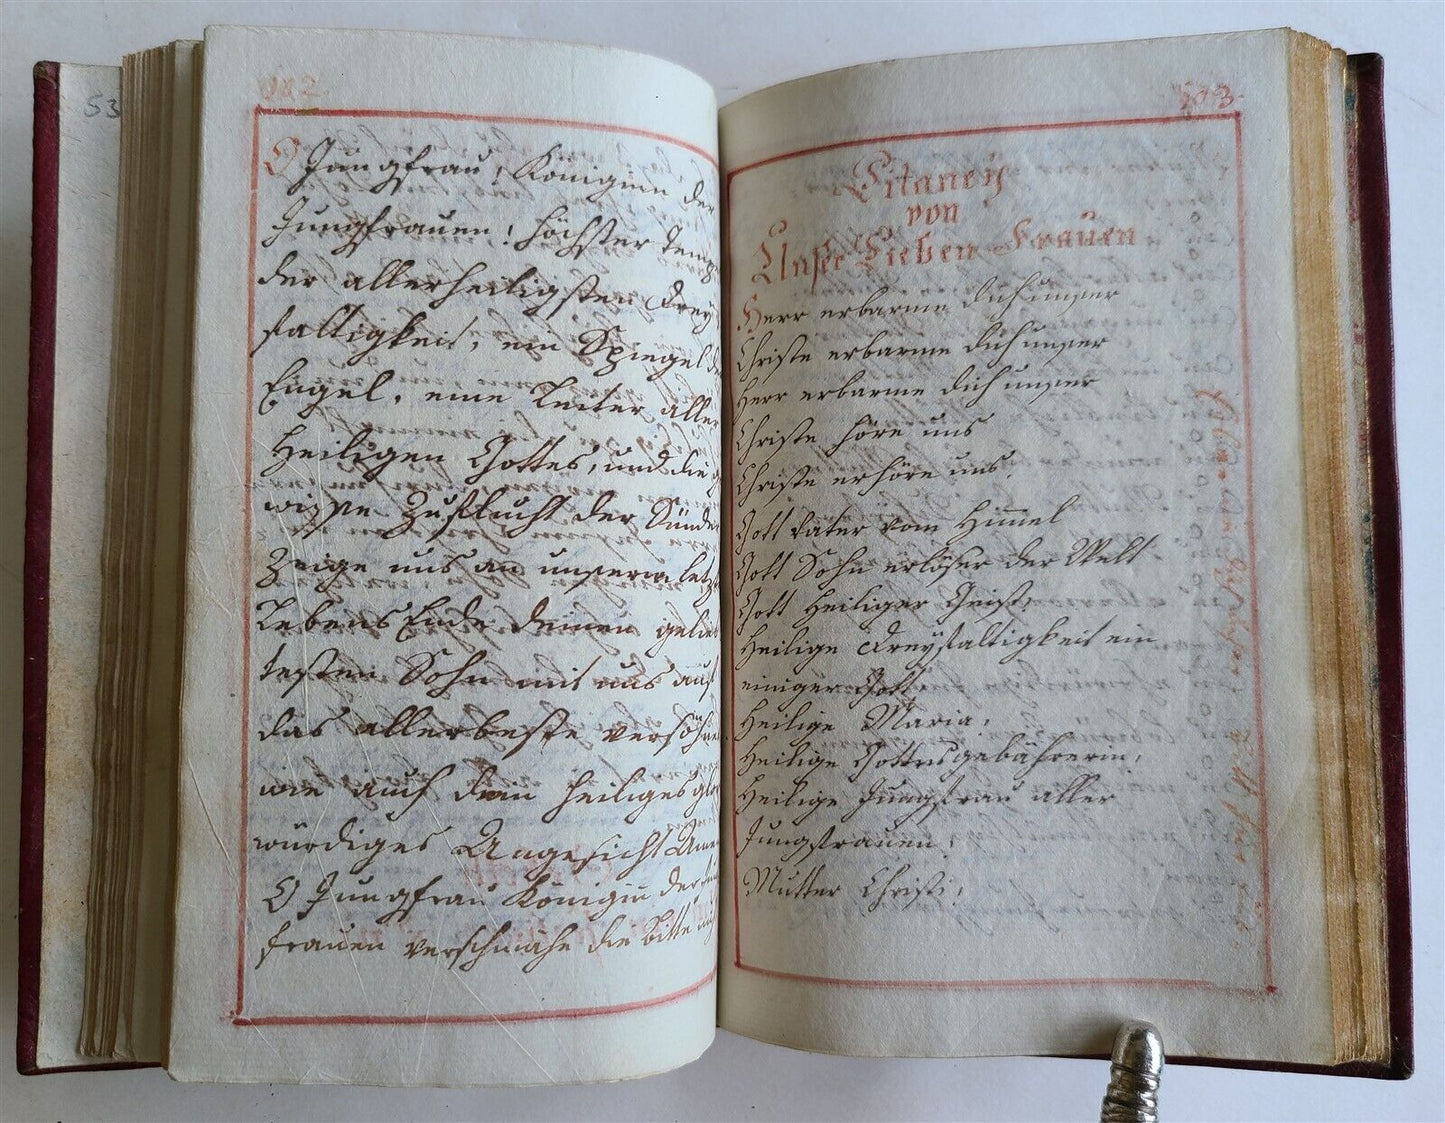 102.
O Jungfrau, Königinn der
Jungfrauen! höchster Temp
der allerheiligsten Drey
faltigkeit, ein Spiegel d
Engel, eine Leiter aller
Heiligen Gottes, und die g
wisse Zuflucht der Sünde
Zeige uns an unserm letz
Lebens Ende deinen gelieb
testen Sohn mit uns auf
das allerbeste versöhn
wie auch dein heiliges glor
würdiges Angesicht Ame
O Jungfrau Königin̄ der
frauen verschmähe die bitte
103.
Litaney
von
Unser Lieben Frauen
Herr erbarme dich unser
Christe erbarme dich unser
Herr erbarme dich unser
Christe höre uns
Christe erhöre uns.
Gott Vater vom Him̄el
Gott Sohn erlöser der Welt
Gott Heiliger Geist,
Heilige Dreyfaltigkeit ein
einiger Gott,
Heilige Maria,
Heilige Gottesgebährerin,
Heilige Jungfrau aller
Jungfrauen,
Mutter Christi,
53